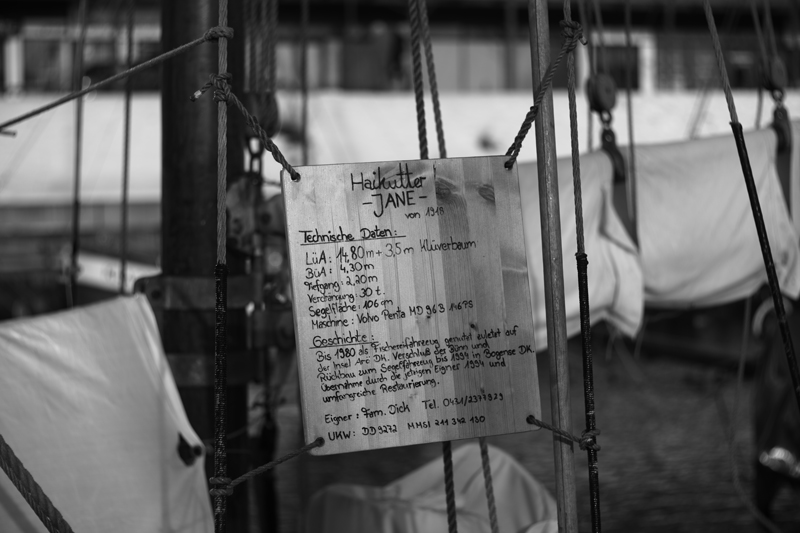 Haikutter
-JANE-
von 1918
Technische Daten:
LüA: 14,80m + 3,5m Klüverbaum
BüA: 4,30m
Tiefgang: 2,20m
Verdrängung: 30 t.
Segelfläche: 106 qm
Maschine: Volvo Penta MD 96B 146PS
Geschichte:
Bis 1980 als Fischereifahrzeug genutzt zuletzt auf
der Insel Arö DK. Verschluß der Bünn und
Rückbau zum Segelfahrzeug bis 1994 in Bogense DK.
Übernahme durch die jetzigen Eigner 1994 und
umfangreiche Restaurierung.
Eigner: Fam. Dick Tel. 0431/2377929
UKW: DD9272 MMSI 211 342 130